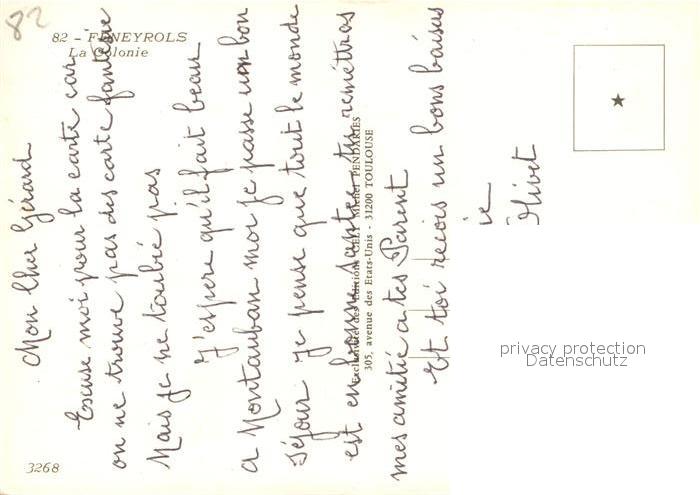 82
82 - FENEYROLS
La Colonie
Mon Cher Gérard
Excuse moi pour la carte car
on ne trouve pas des carte fantesie
Mais je ne t'oublie pas
J'espere qu'il fait beau
a Montauban moi je passe un bon
Séjour je pense que tout le monde
est en bonne santee tu remettras
mes amitié a tes Parent
Et toi recois un bons baisus
ie
Exclusivité des Editions GELY Michel PENDARIES
305, avenue des Etats-Unis - 31200 TOULOUSE
3268
privacy protection
Datenschutz